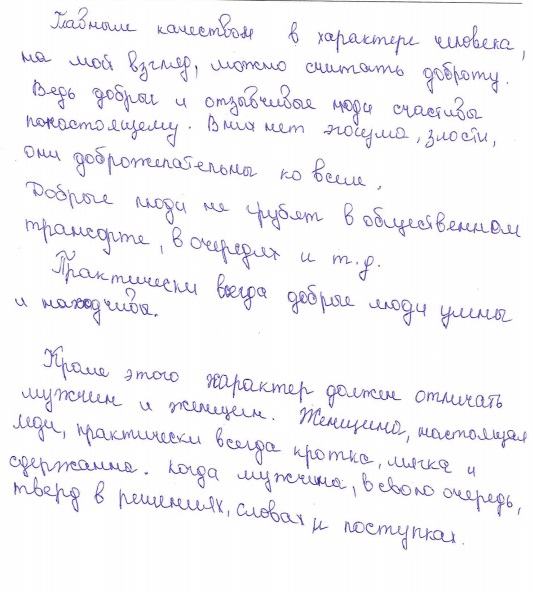 Главным качеством в характере человека,
на мой взгляд, можно считать доброту.
Ведь добрые и отзывчивые люди счастивы
понастоящему. В них нет эгоизма, злости,
они доброжелательны ко всем.
Добрые люди не грубят в общественном
транспорте, в очередях и т.д.
Практически всегда добрые люди умны
и находчивы.
Кроме этого характер должен отличать
мужчин и женщин. Женщина, настоящая
леди, практически всегда кротка, мягка и
сдержанна. Когда мужчина, в свою очередь,
тверд в решениях, словах и поступках.